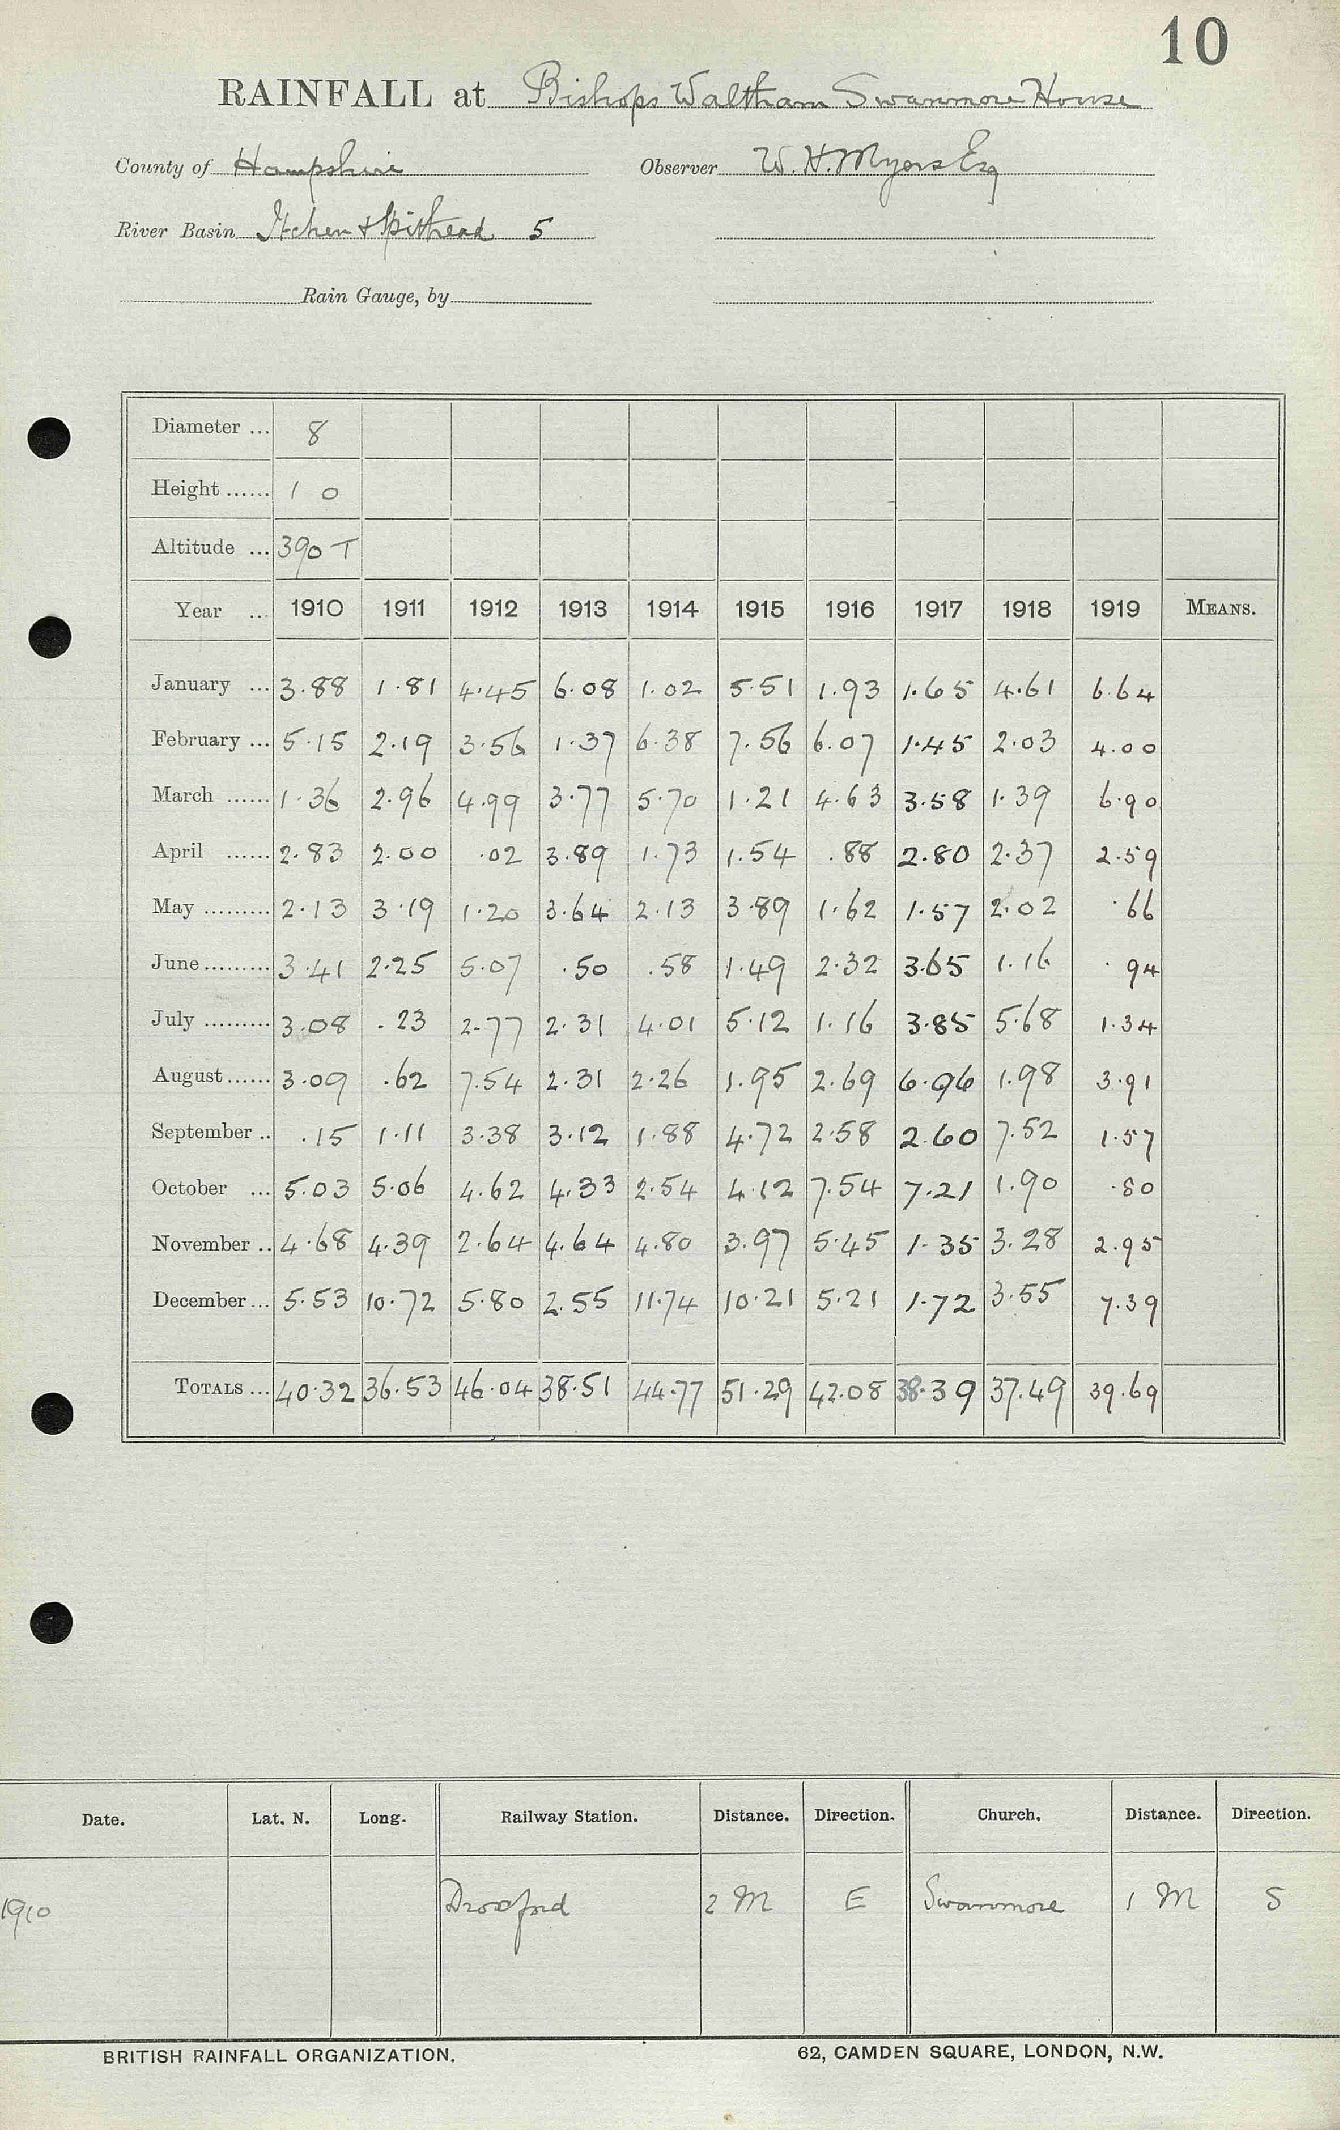 10
RAINFALL at Bishops Waltham Swanmore House
County of Hampshire Observer W. H. Myers Esq
River Basin Itchen + Spithead 5
Rain Gauge, by
Diameter ... 8
Height ...... 1 0
Altitude ... 390 T
Year ... 1910 1911 1912 1913 1914 1915 1916 1917 1918 1919 MEANS.
January ... 3.88 1.81 4.45 6.08 1.02 5.51 1.93 1.65 4.61 6.64
February ... 5.15 2.19 3.56 1.37 6.38 7.56 6.07 1.45 2.03 4.00
March ...... 1.36 2.96 4.99 3.77 5.70 1.21 4.63 3.58 1.39 6.90
April ...... 2.83 2.00 .02 3.89 1.73 1.54 .88 2.80 2.37 2.59
May ......... 2.13 3.19 1.20 3.64 2.13 3.89 1.62 1.57 2.02 .66
June ......... 3.41 2.25 5.07 .50 .58 1.49 2.32 3.65 1.16 .94
July ......... 3.08 .23 2.77 2.31 4.01 5.12 1.16 3.85 5.68 1.34
August ...... 3.09 .62 7.54 2.31 2.26 1.95 2.69 6.96 1.98 3.91
September .. .15 1.11 3.38 3.12 1.88 4.72 2.58 2.60 7.52 1.57
October ... 5.03 5.06 4.62 4.33 2.54 4.12 7.54 7.21 1.90 .80
November .. 4.68 4.39 2.64 4.64 4.80 3.97 5.45 1.35 3.28 2.95
December ... 5.53 10.72 5.80 2.55 11.74 10.21 5.21 1.72 3.55 7.39
TOTALS ... 40.32 36.53 46.04 38.51 44.77 51.29 42.08 38.39 37.49 39.69
Date. Lat. N. Long. Railway Station. Distance. Direction. Church. Distance. Direction.
1910 Droxford 2 M E Swanmore 1 M S
BRITISH RAINFALL ORGANIZATION. 62, CAMDEN SQUARE, LONDON, N.W.